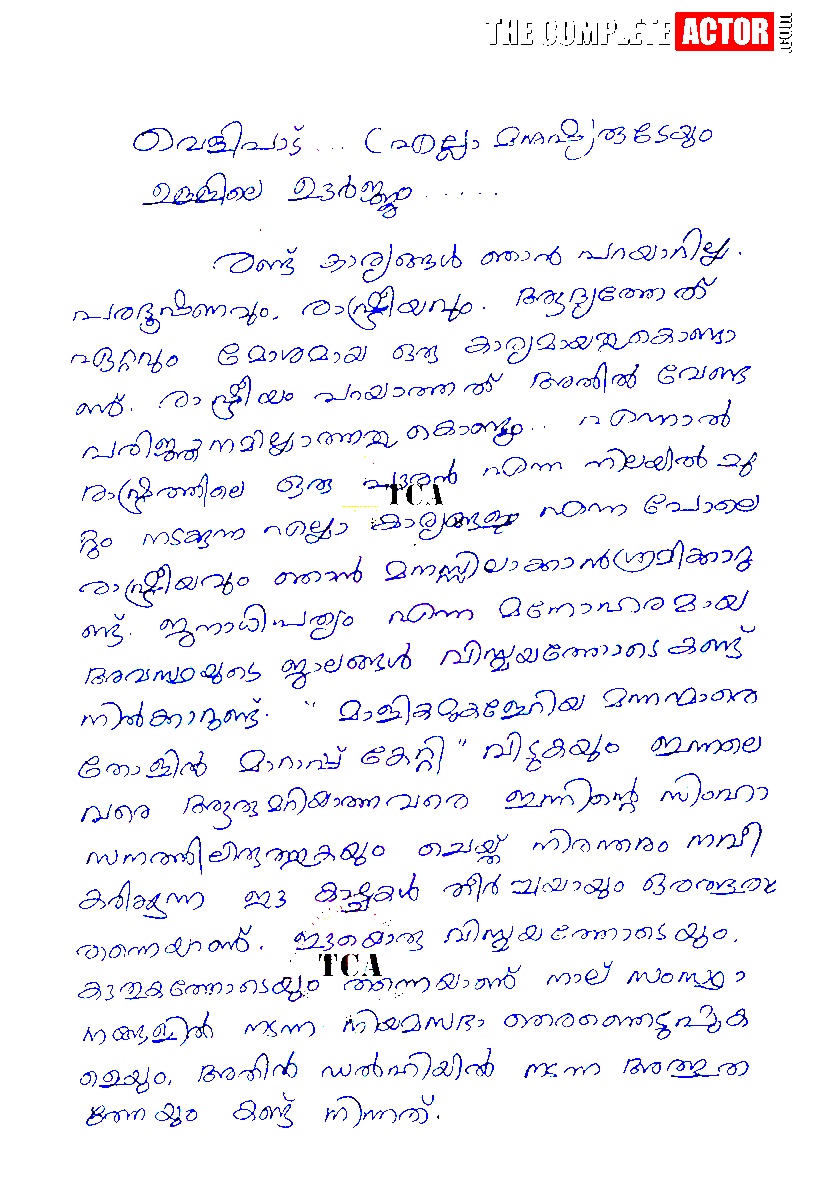 THE COMPLETE ACTOR
വെളിപാട് ... (എല്ലാ മനുഷ്യരുടേയും
ഉള്ളിലെ ഊർജ്ജം .....
രണ്ട് കാര്യങ്ങൾ ഞാൻ പറയാറില്ല.
പരദൂഷണവും, രാഷ്ട്രീയവും. ആദ്യത്തേത്
ഏറ്റവും മോശമായ ഒരു കാര്യമായതുകൊണ്ടാ
ണ്. രാഷ്ട്രീയം പറയാത്തത് അതിൽ വേണ്ട
പരിജ്ഞാനമില്ലാത്തതു കൊണ്ടും.. എന്നാൽ
രാഷ്ട്രത്തിലെ ഒരു പൗരൻ എന്ന നിലയിൽ ചു
TCA
റ്റും നടക്കുന്ന എല്ലാ കാര്യങ്ങളും എന്ന പോലെ
രാഷ്ട്രീയവും ഞാൻ മനസ്സിലാക്കാൻ ശ്രമിക്കാറു
ണ്ട്. ജനാധിപത്യം എന്ന മനോഹരമായ
അവസ്ഥയുടെ ജാലങ്ങൾ വിസ്മയത്തോടെ കണ്ട്
നിൽക്കാറുണ്ട്. "മാളികമുകളേറിയ മന്നന്മാരെ
തോളിൽ മാറാപ്പ് കേറ്റി" വിടുകയും ഇന്നലെ
വരെ ആരുമറിയാത്തവരെ ഇന്നിന്റെ സിംഹാ
സനത്തിലിരുത്തുകയും ചെയ്ത് നിരന്തരം നവീ
കരിക്കുന്ന ഈ കാഴ്ചകൾ തീർച്ചയായും ഒരത്ഭുതം
തന്നെയാണ്. ഇതേയൊരു വിസ്മയത്തോടെയും,
കൗതുകത്തോടെയും തന്നെയാണ് നാല് സംസ്ഥാ
TCA
നങ്ങളിൽ നടന്ന നിയമസഭാ തെരഞ്ഞെടുപ്പുക
ളെയും, അതിൻ ഡൽഹിയിൽ നടന്ന അത്ഭുത
ത്തേയും കണ്ട് നിന്നത്.